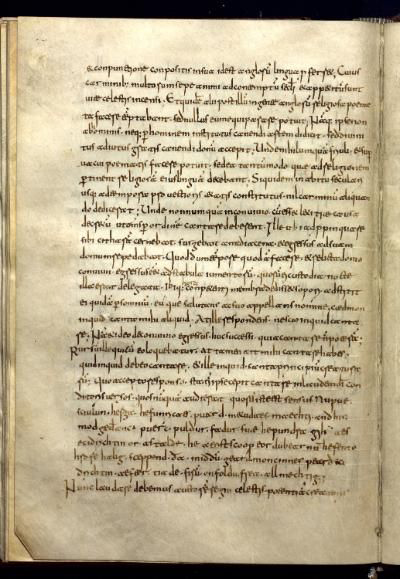 & conpunctione conpositis in sua id est anglorum lingua proferret. Cuius
carminibus multorum sepe animi ad contemptum secli & appetitum sunt
uitae celestis incensi. Et quidem alii post illum in gente anglorum religiosa poema
ta facere temptabant. sed nullus eum equiperare potuit. Namque ipse non
ab hominibus. neque per hominem institutus canendi artem didicit. sed diuini
tus adiutus gratis canendi donum accepit. Unde nihil umquam friuoli & super
uacui poematis facere potuit. sed ea tantummodo que ad religionem
pertinent religiosam eius linguam decebant. Siquidem in habitu seculari
usque ad tempora prouectioris aetatis constitutus nil carminum aliquan
do didicerat; Unde nonnumquam in conuiuio cum esset laetitiae causa
decretum ut omnes per ordinem cantare deberent. Ille ubi adpropinquare
sibi citharam cernebat. surgebat a media cena. & egressus ad suam
domum repedabat. Quod dum tempore quodam faceret. & relicta domo
conuiuii egressus esset ad stabula iumentorum. quorum ei custodia nocte
illa erat delegata. Ibique conpetenti membra dedisset sopori adstitit
ei quidam per somnium eumque salutans ac suo appellans nomine. caedmon
inquid canta mihi aliquid. At ille respondens. nescio inquid canta
re. Nam & ideo de conuiuio egressus huc successi. quia cantare non poteram.
Rursum ille qui cum eo loquebatur. At tamen ait mihi cantare habes.
quid inquid debeo cantare. & ille inquid. canta principium creatura
rum. Quo accepto responso. statim ipse coepit cantare in laudem dei con
ditoris uersus. quos numquam audierat. quorum iste est sensus. Nu pue
sciulun herga hefunricaes puard metudaes maecti and his
modgedanc puerc puldur fadur sue he pundra gihuaes
eci drichtin or astalde. he aerist scoop eordu bearnum hefen to
hrofe halig sceppend. da middumgeard moncinnes peard eci
drichtin aefter tiade. firum on foldu frea allmechtig
Nunc laudare debemus auctorem regni celestis potentiam creatoris